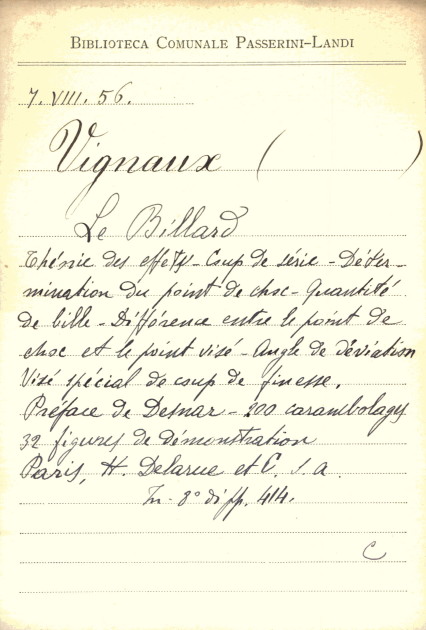 BIBLIOTECA COMUNALE PASSERINI-LANDI
7. VIII. 56.
Vignaux ( )
Le Billard
Théorie des effets - Coup de série - Déter-
mination du point de choc - Quantité
de bille - Différence entre le point de
choc et le point visé - Angle de déviation
Visé spécial de coup de finesse.
Préface de Desnar - 200 carambolages
32 figures de démonstration
Paris, H. Delarue et C. s. a.
In- 8° di pp. 414.
C